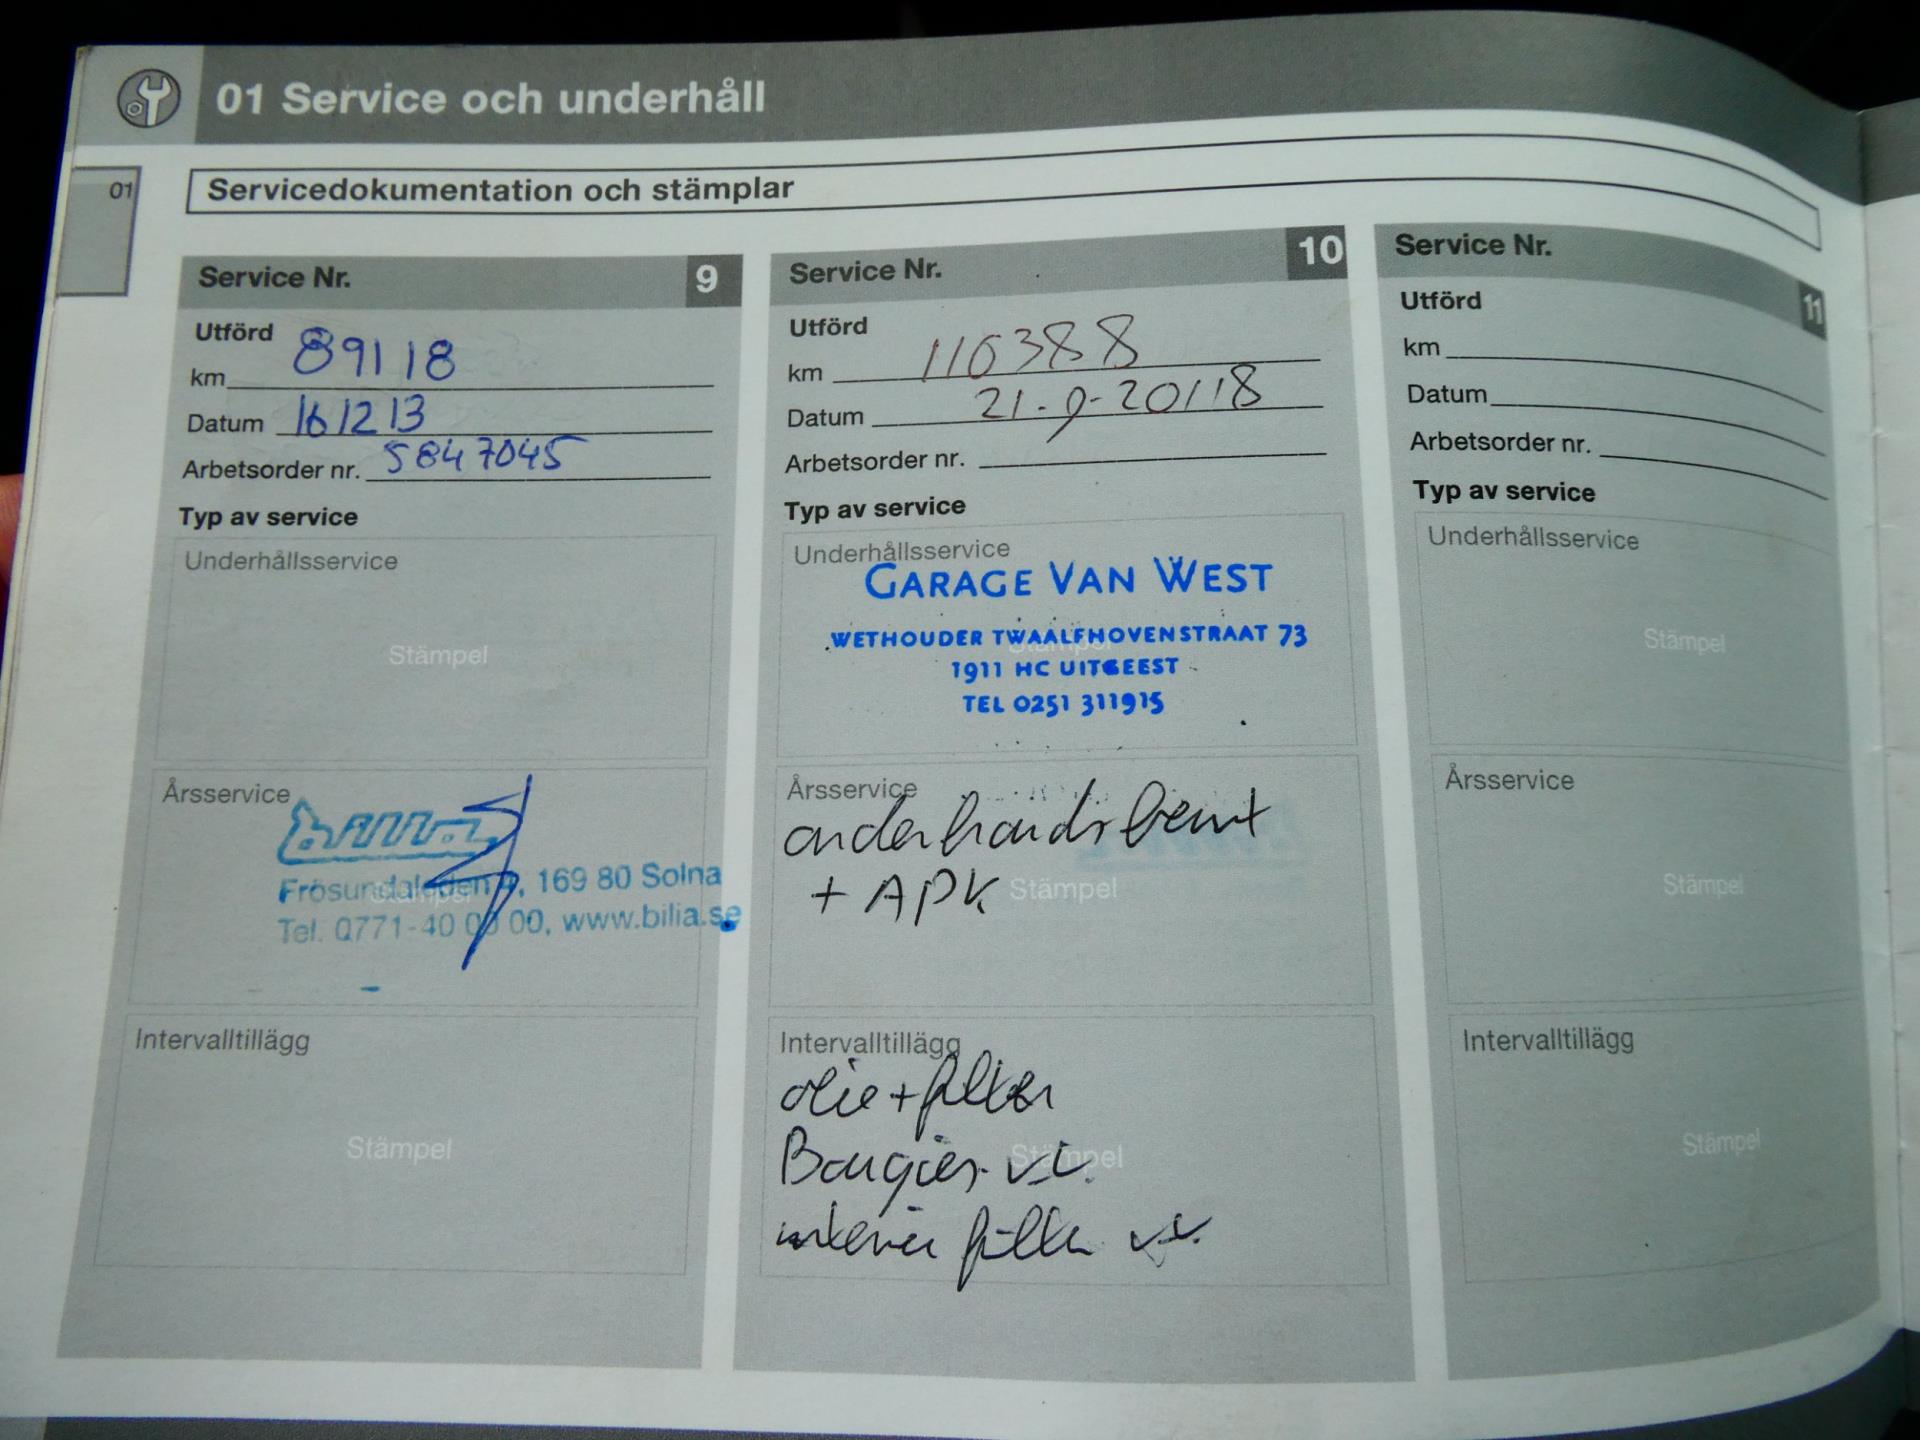 01 Service och underhåll
01
Servicedokumentation och stämplar
Service Nr. 9
Utförd
km 89118
Datum 161213
Arbetsorder nr. 5847045
Typ av service
Underhållsservice
Stämpel
Årsservice
bilia
Frösundaleden, 169 80 Solna
Stämpel
Tel. 0771-40 00 00, www.bilia.se
Intervalltillägg
Stämpel
Service Nr. 10
Utförd
km 110388
Datum 21-9-20118
Arbetsorder nr.
Typ av service
Underhållsservice
GARAGE VAN WEST
WETHOUDER TWAALFHOVENSTRAAT 73
Stämpel
1911 HC UITGEEST
TEL 0251 311915
Årsservice
onderhoudsbeurt
+ APK
Stämpel
Intervalltillägg
olie + filter
Bougies v.v.
Stämpel
interieur filter v.v.
Service Nr. 11
Utförd
km
Datum
Arbetsorder nr.
Typ av service
Underhållsservice
Stämpel
Årsservice
Stämpel
Intervalltillägg
Stämpel